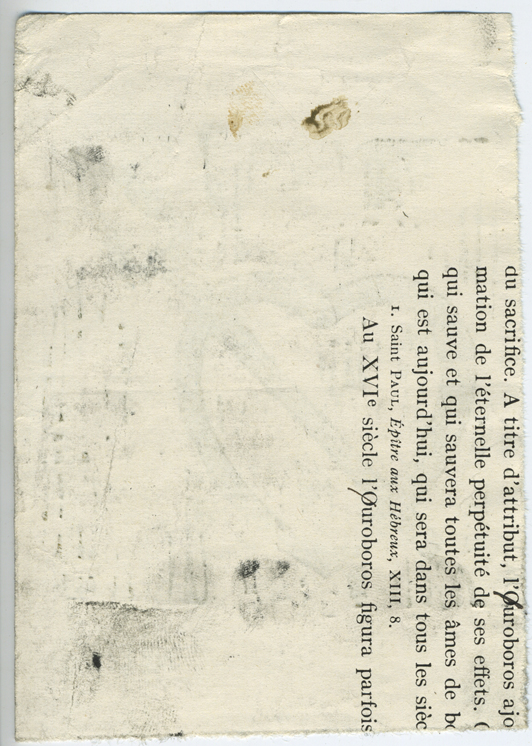 du sacrifice. A titre d'attribut, l'Ouroboros ajo
mation de l'éternelle perpétuité de ses effets. (
qui sauve et qui sauvera toutes les âmes de b
qui est aujourd'hui, qui sera dans tous les sièc
1. Saint PAUL, Épître aux Hébreux, XIII, 8.
Au XVIe siècle l'Ouroboros figura parfois